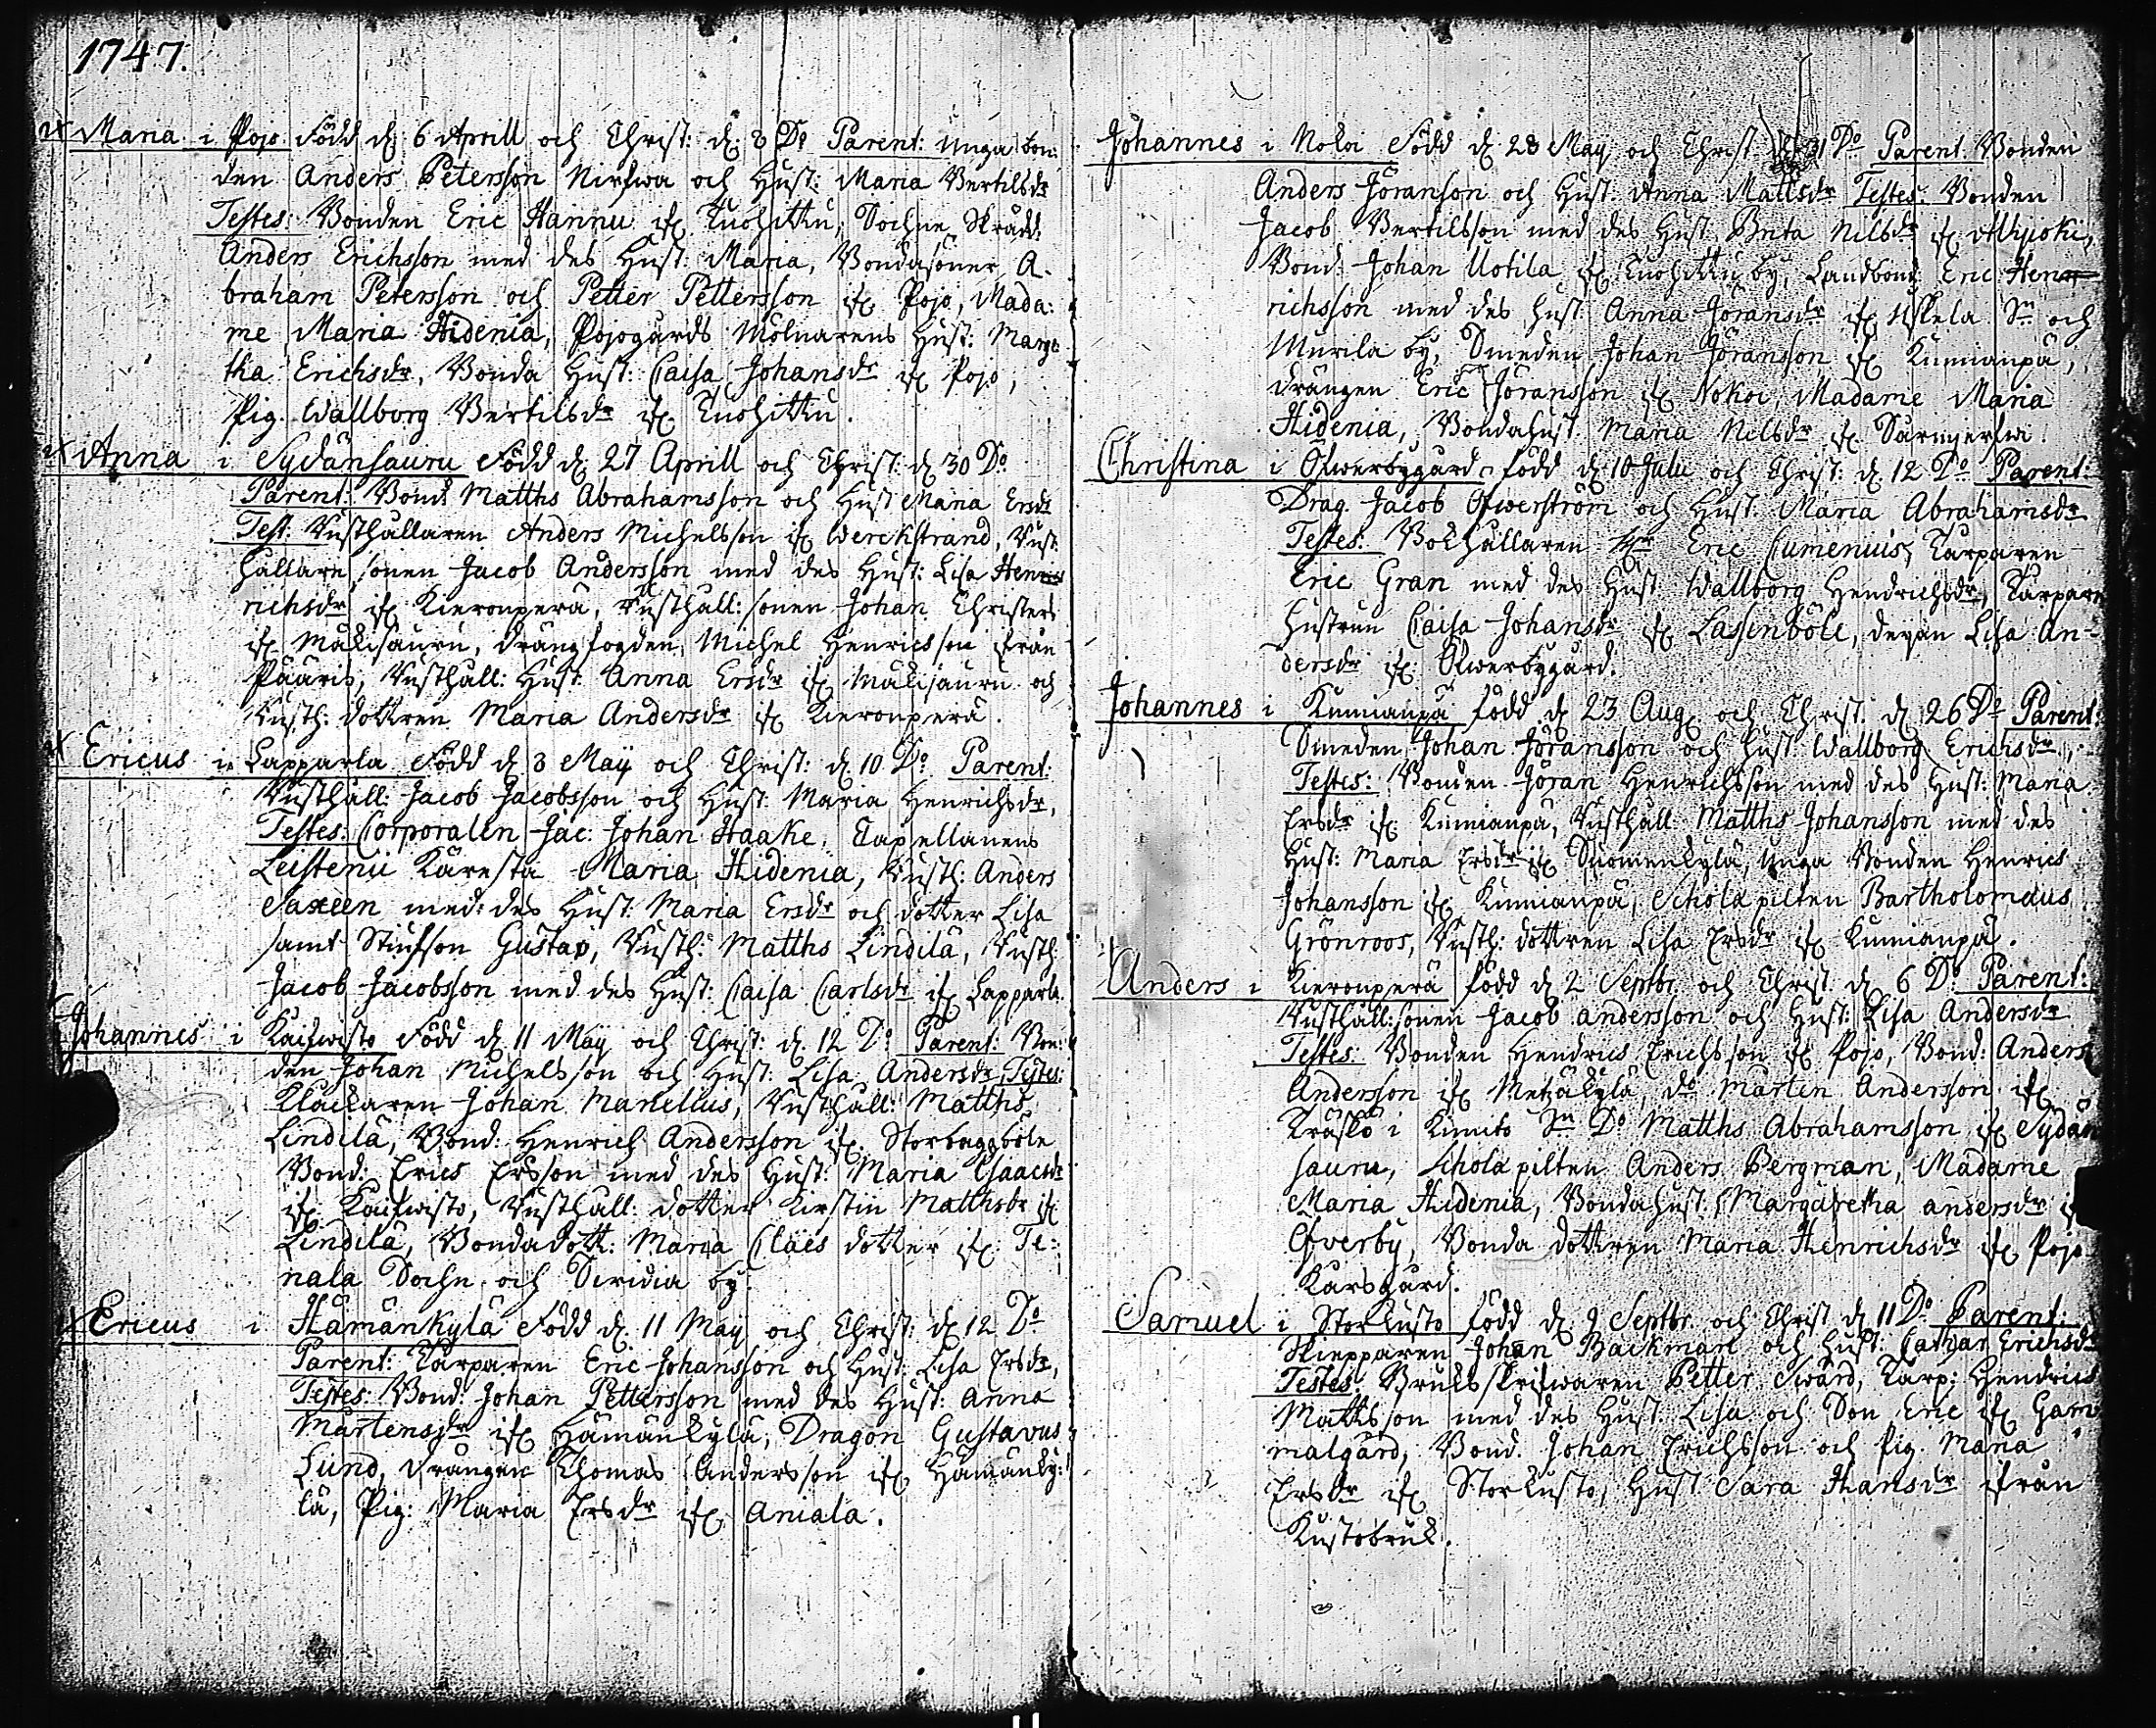 1747.
Maria i Pojo Född d. 6 Aprill och Christ: d. 8 Do Parent: Unga bon-
den Anders Petersson Nirfwa och Hust: Maria Bertilsdr
Testes: Bonden Eric Hannu if. Tuohittu, Sochne Skrädd:
Anders Erichsson med des Hust: Maria, Bondasöner A-
braham Petersson och Petter Pettersson if. Pojo, Mada:
me Maria Hidenia, Pojogårds Mölnarens Hust: Marga
tha Erichsdr, Bonda Hust: Caisa Johansdr if. Pojo,
Pig. Wallborg Bertilsdr if. Tuohittu.
Anna i Sydänsauru Född d. 27 Aprill och Christ: d. 30 Do
Parent: Bond: Matths Abrahamsson och Hust Maria Ersdr
Test: Rusthållaren Anders Michelsson if. Werckstrand, Rust
hållare sonen Jacob Andersson med des Hust: Lisa Hen
richsdr if. Kieronperä, Rusthåll: sonen Johan Christers
if. Mälisauru, drängfogden Michel Henricsson ifrån
Pääris, Rusthåll: Hust: Anna Ersdr if. Mälisauru och
Rusth: dottren Maria Andersdr if. Kieronperä.
Ericus i Lapparla Född d. 8 Maÿ och Christ: d. 10 Do Parent:
Rusthåll: Jacob Jacobsson och Hust: Maria Henrichsdr,
Testes: Corporalen Jac: Johan Haake, Capellanens
Leistenii Käresta Maria Hidenia, Rusth: Anders
Saxeen med des Hust: Maria Ersdr och dotter Lisa
samt Stiufson Gustav, Rusth: Matths Lindilä, Rusth
Jacob Jacobsson med des Hust: Caisa Carlsdr if. Lapparla.
Johannes i Kaisvisto Född d. 11 Maÿ och Christ: d. 12 Do Parent: Bon:
den Johan Michelsson och Hust: Lisa Andersdr, Testes:
Klåckaren Johan Manellus, Rusthåll: Matths
Lindilä, Bond: Henrich Andersson if. Storbaggböle
Bond: Erics Ersson med des Hust: Maria Isaacsdr
if. Kaisvisto, Rusthåll: dotter Kirstin Matthsdr if
Lindilä, Bondadott: Maria Claes dotter if. Te:
nala Sochn och by.
Ericus i Hämänkylä Född d. 11 Maÿ och Christ: d. 12 Do
Parent: Torparen Eric Johansson och Hust: Lisa Ersdr,
Testes: Bond: Johan Pettersson med des Hust: Anna
Mårtensdr if. Hämänkylä, Dragon Gustavus
Lund, drängen Thomas Andersson if. Hämänky:
lä, Pig: Maria Ersdr if. Aniala.
Johannes i Nokoi Född d. 28 Maÿ och Christ d. 31 Do Parent Bonden
Anders Jöransson och Hust: Anna Mattsdr Testes: Bonden
Jacob Bertilsson med des Hust: Brita Nilsdr if. Ahjoki,
Bond: Johan Uotila if. Tuohittu by, Landbond Eric Hen
richsson med des Hust Anna Jöransdr if. Uskela Sn och
Murila by, Smeden Johan Jöransson if. Kunianpä,
drängen Eric Jöransson if. Nokoi, Madame Maria
Hidenia, Bondahust Maria Nilsdr if. Särngerfwi.
Christina i Öfwerbygård född d. 10 Julii och Christ: d. 12 Do Parent:
Drag. Jacob Öfwerström och Hust: Maria Abrahamsdr
Testes: Bokhållaren Hr Eric Cumenius, Torparen
Eric Gran med des Hust Wallborg Hendrichsdr, Torpare
hustrun Caisa Johansdr if. Lassenböle, deyan Lisa An-
dersdr if. Öfwerbygård.
Johannes i Kunianpä född d. 23 Aug och Christ: d. 26 Do Parent:
Smeden Johan Jöransson och Hust Wallborg Erichsdr,
Testes: Bonden Jöran Henrichsson med des Hust: Maria
Ersdr if. Kunianpä, Rusthåll Matths Johansson med des
Hust: Maria Ersdr if. Suomenkylä, Unga Bonden Henrics
Johansson if. Kunianpä, Schola pilten Bartholomæus
Grönroos, Rusth: dottren Lisa Ersdr if. Kunianpä.
Anders i Kieronperä född d. 2 Septbr. och Christ d. 6 Do Parent:
Rusthåll: sonen Jacob Andersson och Hust: Lisa Andersdr
Testes: Bonden Hendrics Erichsson if. Pojo, Bond: Anders
Andersson if. Metzäkylä, do Mårten Andersson if
Träskö i Kimito Sn Do Matths Abrahamsson if Sydän
sauru, Schola pilten Anders Bergman, Madame
Maria Hidenia, Bondahust: Margaretha Andersdr if
Öfverby, Bonda dottren Maria Henrichsdr if Pojo
Karsgård.
Samuel i Storkusto född d. 9 Septbr. och Christ d. 11 Do Parent:
Skiepparen Johan Backman och Hust: Cathar Erichsdr
Testes: Bruks skrifwaren Petter Swärd, Torp: Hendrics
Mattsson med des Hust: Lisa och Son Eric if. Gam
malgård, Bond: Johan Erichsson och Pig. Maria
Ersdr if. Storkusto, Hust Sara Hansdr ifrån
Kustobruk.